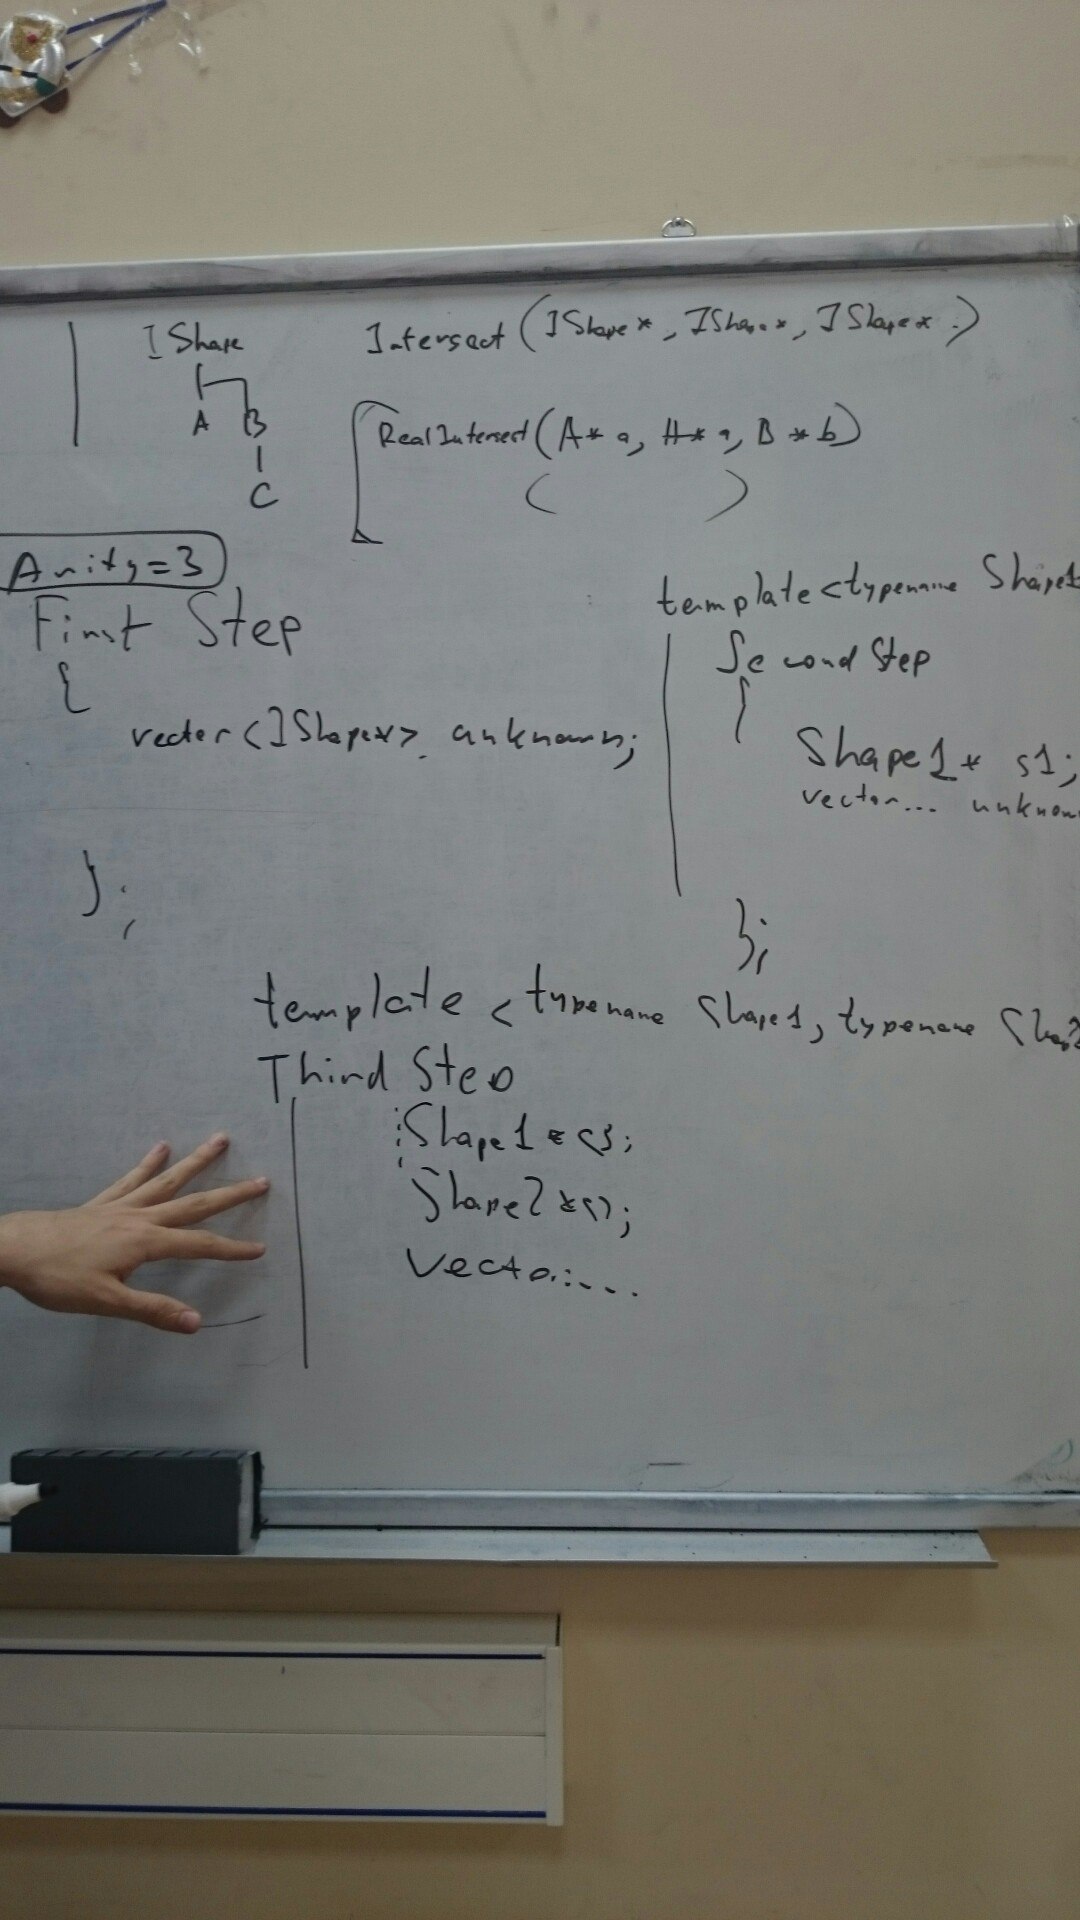 IShape Intersect(IShape*, IShape*, IShape*.)
A B
C
RealIntersect(A* a, A* a, B* b)
( )
Arity=3
First Step
{
vector<IShape*> unknown;
};
template<typename Shape1
Second Step
{
Shape1* s1;
vector... unknown
};
template < typename Shape1, typename Shap2
Third Step
Shape1 *
Shape2 *
Vector...